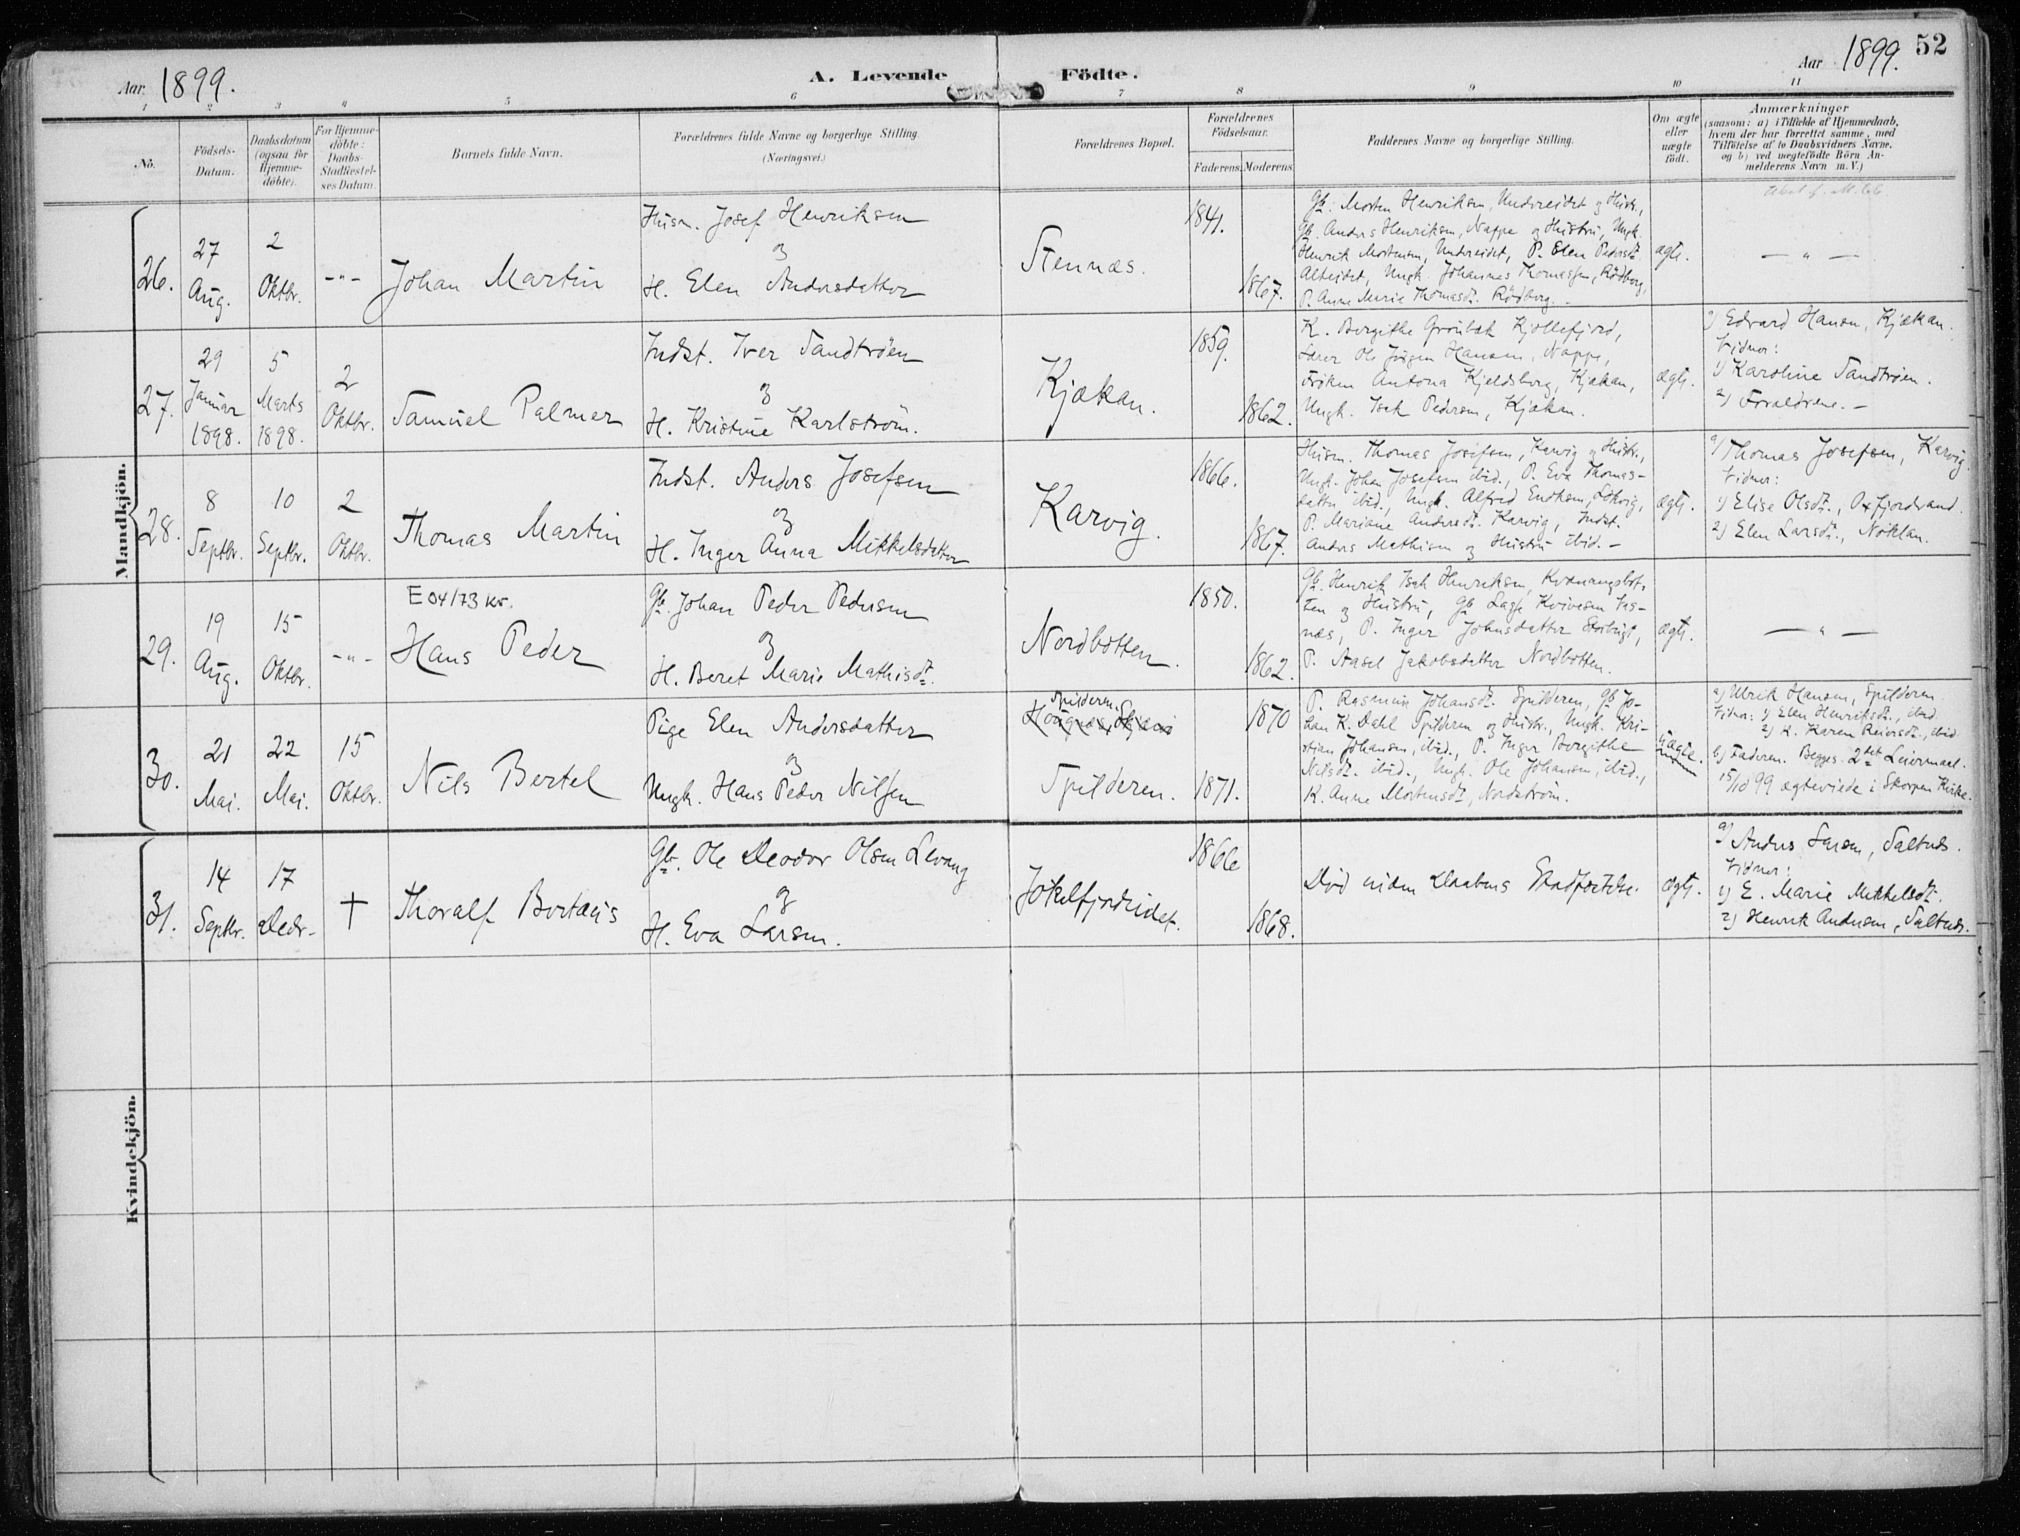 Aar 1899. A. Levende Födte. Aar 1899. 52
1 2 3 4 5 6 7 8 9 10 11
No.
Födsels-
Datum.
Daabsdatum
(ogsaa for
Hjemme-
döbte).
For Hjemme-
döbte:
Daabs-
Stadfæstel-
ses Datum.
Barnets fulde Navn.
Forældrenes fulde Navne og borgerlige Stilling.
(Næringsvei.)
Forældrenes Bopæl.
Forældrenes
Födselsaar.
Faderens. Moderens.
Faddernes Navne og borgerlige Stilling.
Om ægte
eller
uægte
födt.
Anmærkninger
(saasom: a) i Tilfælde af Hjemmedaab,
hvem der har forrettet samme, med
Tilföielse af to Daabsvidners Navne,
og b) ved uægtefödte Börn An-
melderens Navn m. V.)
Mandkjön.
26.
27
Aug.
2
Oktbr.
-"-
Johan Martin
Husm. Josef Henriksen
og
H. Elen Andersdatter
Stennæs.
1841.
1867.
Gb. Morten Henriksen, Undereidet og Hustr.,
Gb. Anders Henriksen, Nappe og Hustru, Ungk.
Henrik Mortensen, Undereidet, P. Elen Pedersdt.
Alteidet, Ungk. Johannes Thomassen, Rödberg,
P. Anne Marie Thomasdt. Rödberg.
ægte.
— " —
27.
29
Januar
1898.
5
Marts
1898.
2
Oktbr.
Samuel Palmer
Indst. Iver Sandtröen
og
H. Kristine Karlström.
Kjækan.
1859.
1862.
K. Bergithe Grönbæk Kjöllefjord,
Lærer Ole Jörgen Hansen, Nappe,
Fröken Antona Kjeldsberg, Kjækan,
Ungk. Isak Pedersen, Kjækan.
ægte.
a) Edvard Hansen, Kjækan.
Vidner:
1) Karoline Sandtröen.
2) Forældrene. -
28.
8
Septbr.
10
Septbr.
2
Oktbr.
Thomas Martin
Indst. Anders Josefsen
og
H. Inger Anna Mikkelsdatter
Karvig.
1866.
1867.
Husm. Thomas Josefsen, Karvig og Hustr.,
Ungk. Johan Josefsen ibid., P. Eva Thomas-
datter ibid., Ungk. Alfred
P. Mariane Andersdt. Karvig, Indst.
Anders Mathisen og Hustru ibid. -
ægte.
a) Thomas Josefsen, Karvig.
Vidner:
1) Elise Olsdt., Oxfjordvand.
2) Elen Larsdt., Nöklan.
29.
19
Aug.
15
Oktbr.
-"-
E 04/73 kr.
Hans Peder
Gb. Johan Peder Pedersen
og
H. Beret Marie Mathisdt.
Nordbotten.
1850.
1862.
Gb. Henrik Isak Henriksen, Kvænangsbot-
ten og Hustru, Gb.
næs, P. Inger Johnsdatter
P. Aasel Jakobsdatter Nordbotten.
ægte.
— " —
30.
21
Mai.
22
Mai.
15
Oktbr.
Nils Bertel
Pige Elen Andersdatter
og
Ungk. Hans Peder Nilsen
Spilderen.
Spilderen.
1870
1871.
P. Rasmine Johansdt. Spilderen, Gb. Jo-
han K. Dahl Spilderen og Hustr., Ungk. Kri-
stian Johansen, ibid., P. Inger Bergithe
Nilsdt. ibid., Ungk. Ole Johansen, ibid.,
K. Anne Mortensdt., Nordström.
uægte.
a) Ulrik Hansen, Spilderen.
Vidner: 1) Elen Henriksdt., ibid.
2) K. Karen Reiersdt., ibid.
b) Faderen. Begges 2det Leiermaal.
15/10 99 ægteviede i Skorpen Kirke.
Kvindekjön.
31.
14
Septbr.
17
Decbr.
†
Thoralf Bertæus
Gb. Ole Deodor Olsen Levang
og
H. Eva Larsen.
Jökelfjordeidet.
1866
1868.
Död uden Daabens Stadfæstelse.
ægte.
a) Anders Larsen, Saltnes.
Vidner:
1) E. Marie Mikkelsdt.
2) Henrik Andersen, Saltnes.